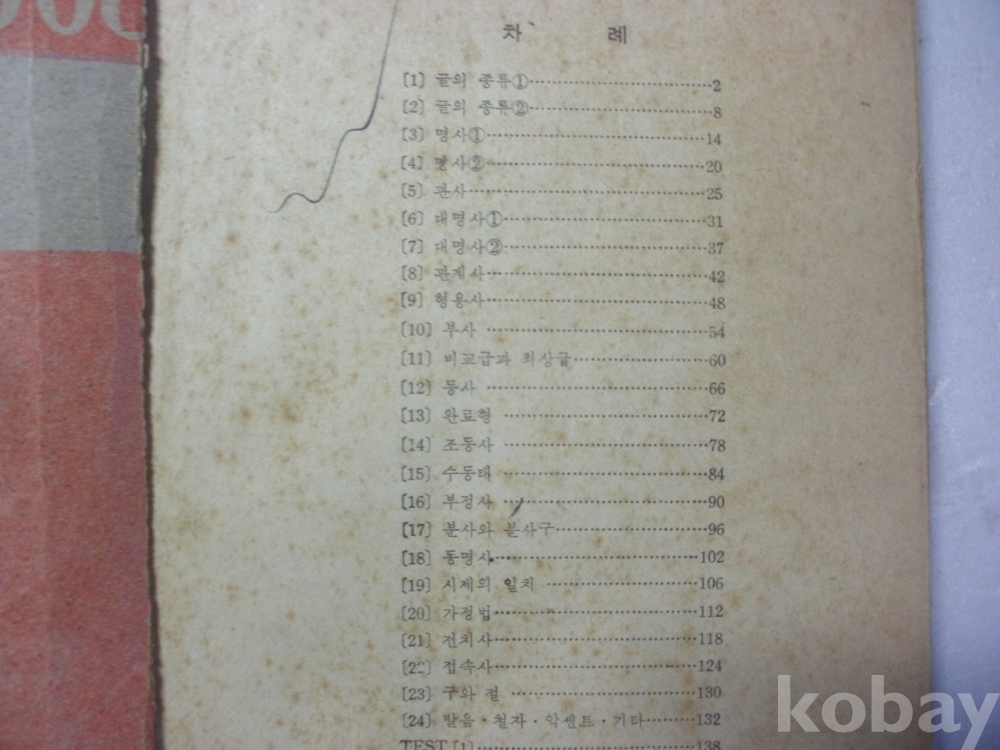 차 례
[1] 글의 종류①……2
[2] 글의 종류②……8
[3] 명사①……14
[4] 명사②……20
[5] 관사……25
[6] 대명사①……31
[7] 대명사②……37
[8] 관계사……42
[9] 형용사……48
[10] 부사……54
[11] 비교급과 최상급……60
[12] 동사……66
[13] 완료형……72
[14] 조동사……78
[15] 수동태……84
[16] 부정사……90
[17] 분사와 분사구……96
[18] 동명사……102
[19] 시제의 일치……106
[20] 가정법……112
[21] 전치사……118
[22] 접속사……124
[23] 구와 절……130
[24] 발음·철자·악센트·기타……132
TEST [1]……138
kobay